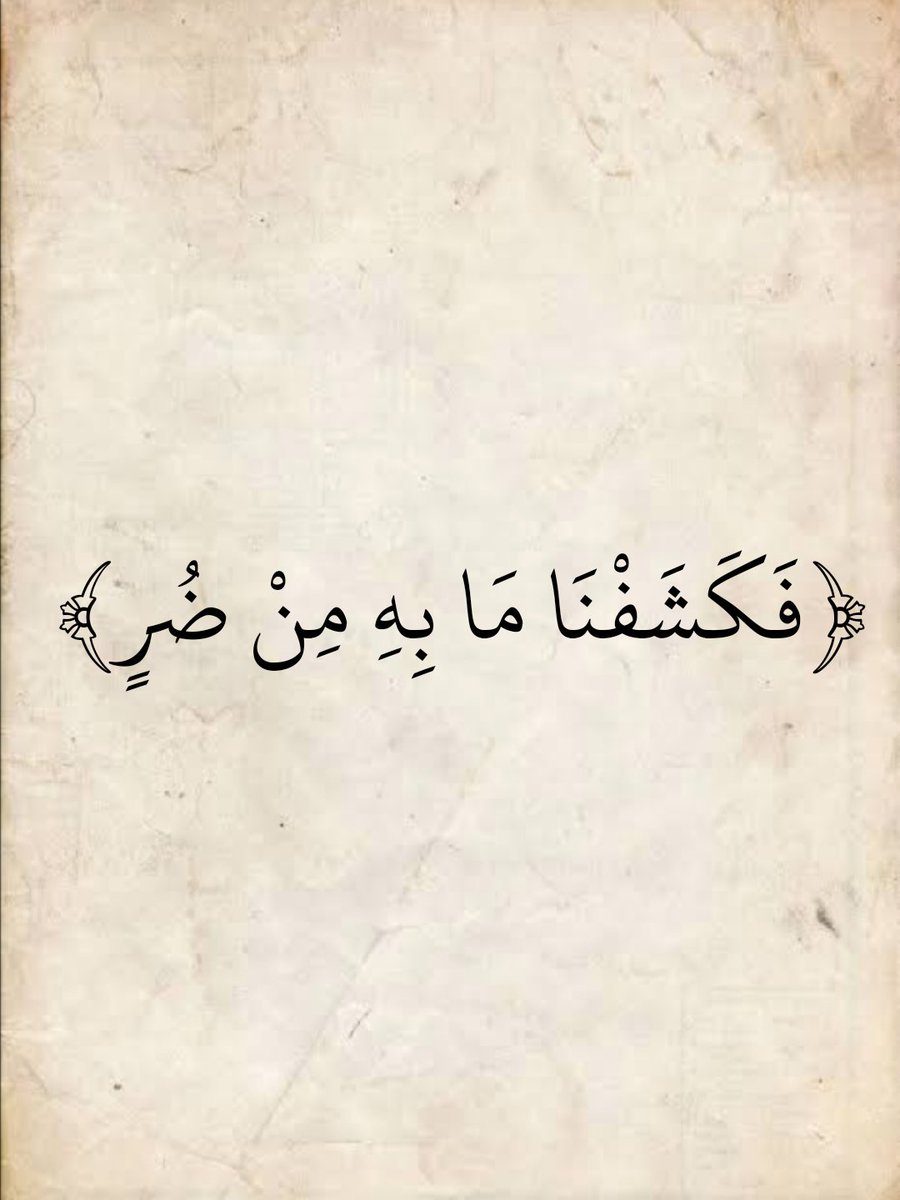 ﴿فَكَشَفْنَا مَا بِهِ مِنْ ضُرٍ﴾